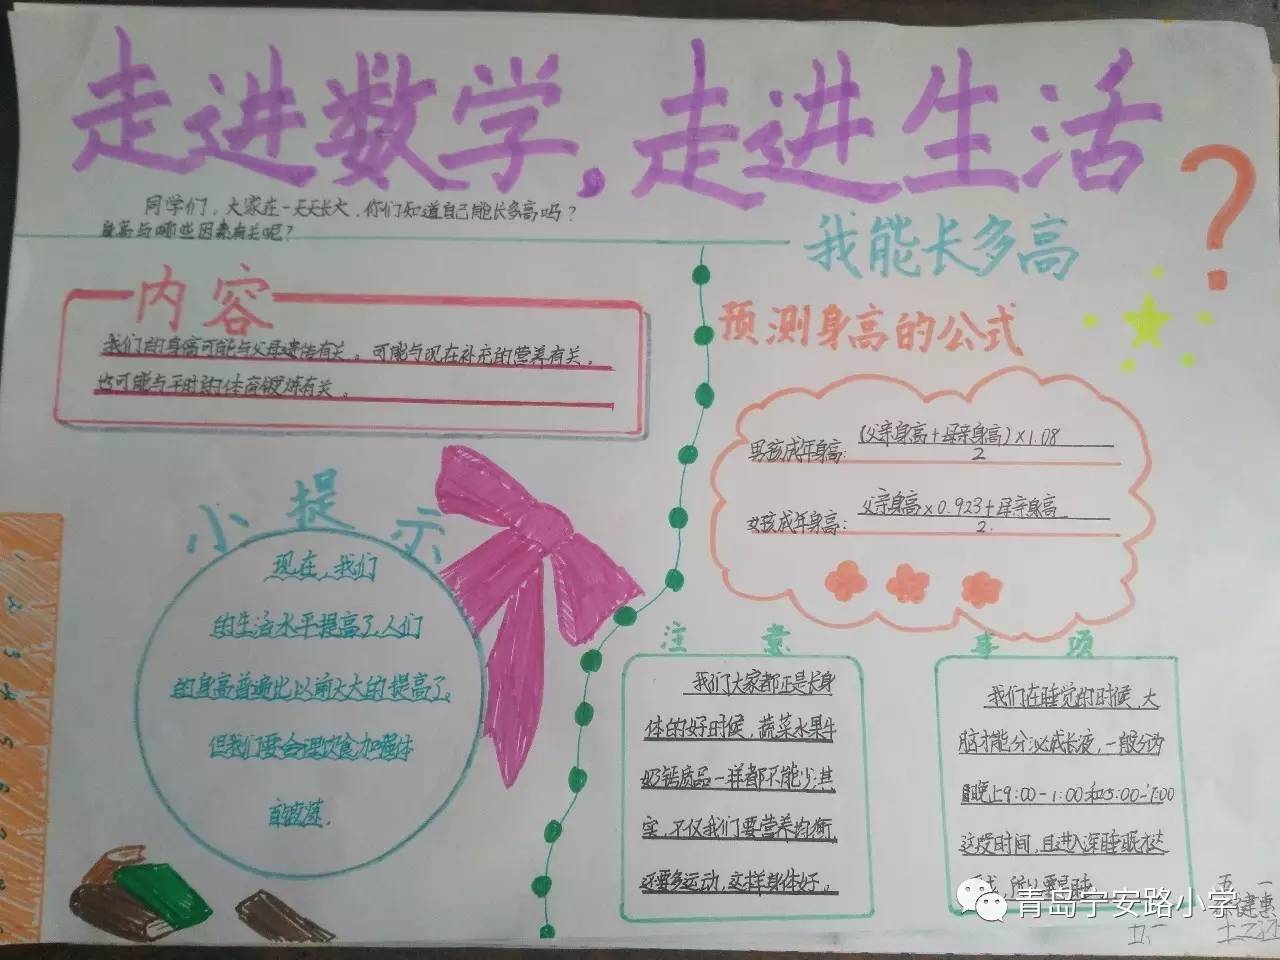 走进数学，走进生活？
同学们，大家在一天天长大，你们知道自己能长多高吗？
身高与哪些因素有关呢？
我能长多高
内容
我们的身高可能与父母遗传有关。可能与现在补充的营养有关。
也可能与平时的体育锻炼有关。
预测身高的公式
男孩成年身高：(父亲身高+母亲身高)×1.08
2
女孩成年身高：父亲身高×0.923+母亲身高
2
小提示
现在，我们
的生活水平提高了人们
的身高普遍比以前大大的提高了。
但我们要合理饮食加强体
育锻炼。
注意
事项
我们大家都正是长身
体的好时候，蔬菜水果牛
奶钙质品一样都不能少其
实，不仅我们要营养均衡，
还要多运动，这样身体好。
我们在睡觉的时候，大
脑才能分泌成长液，一般分为
晚上9:00-1:00和5:00-7:00
这段时间，且进入深睡眠状态
所以要早睡
青岛宁安路小学
五 一